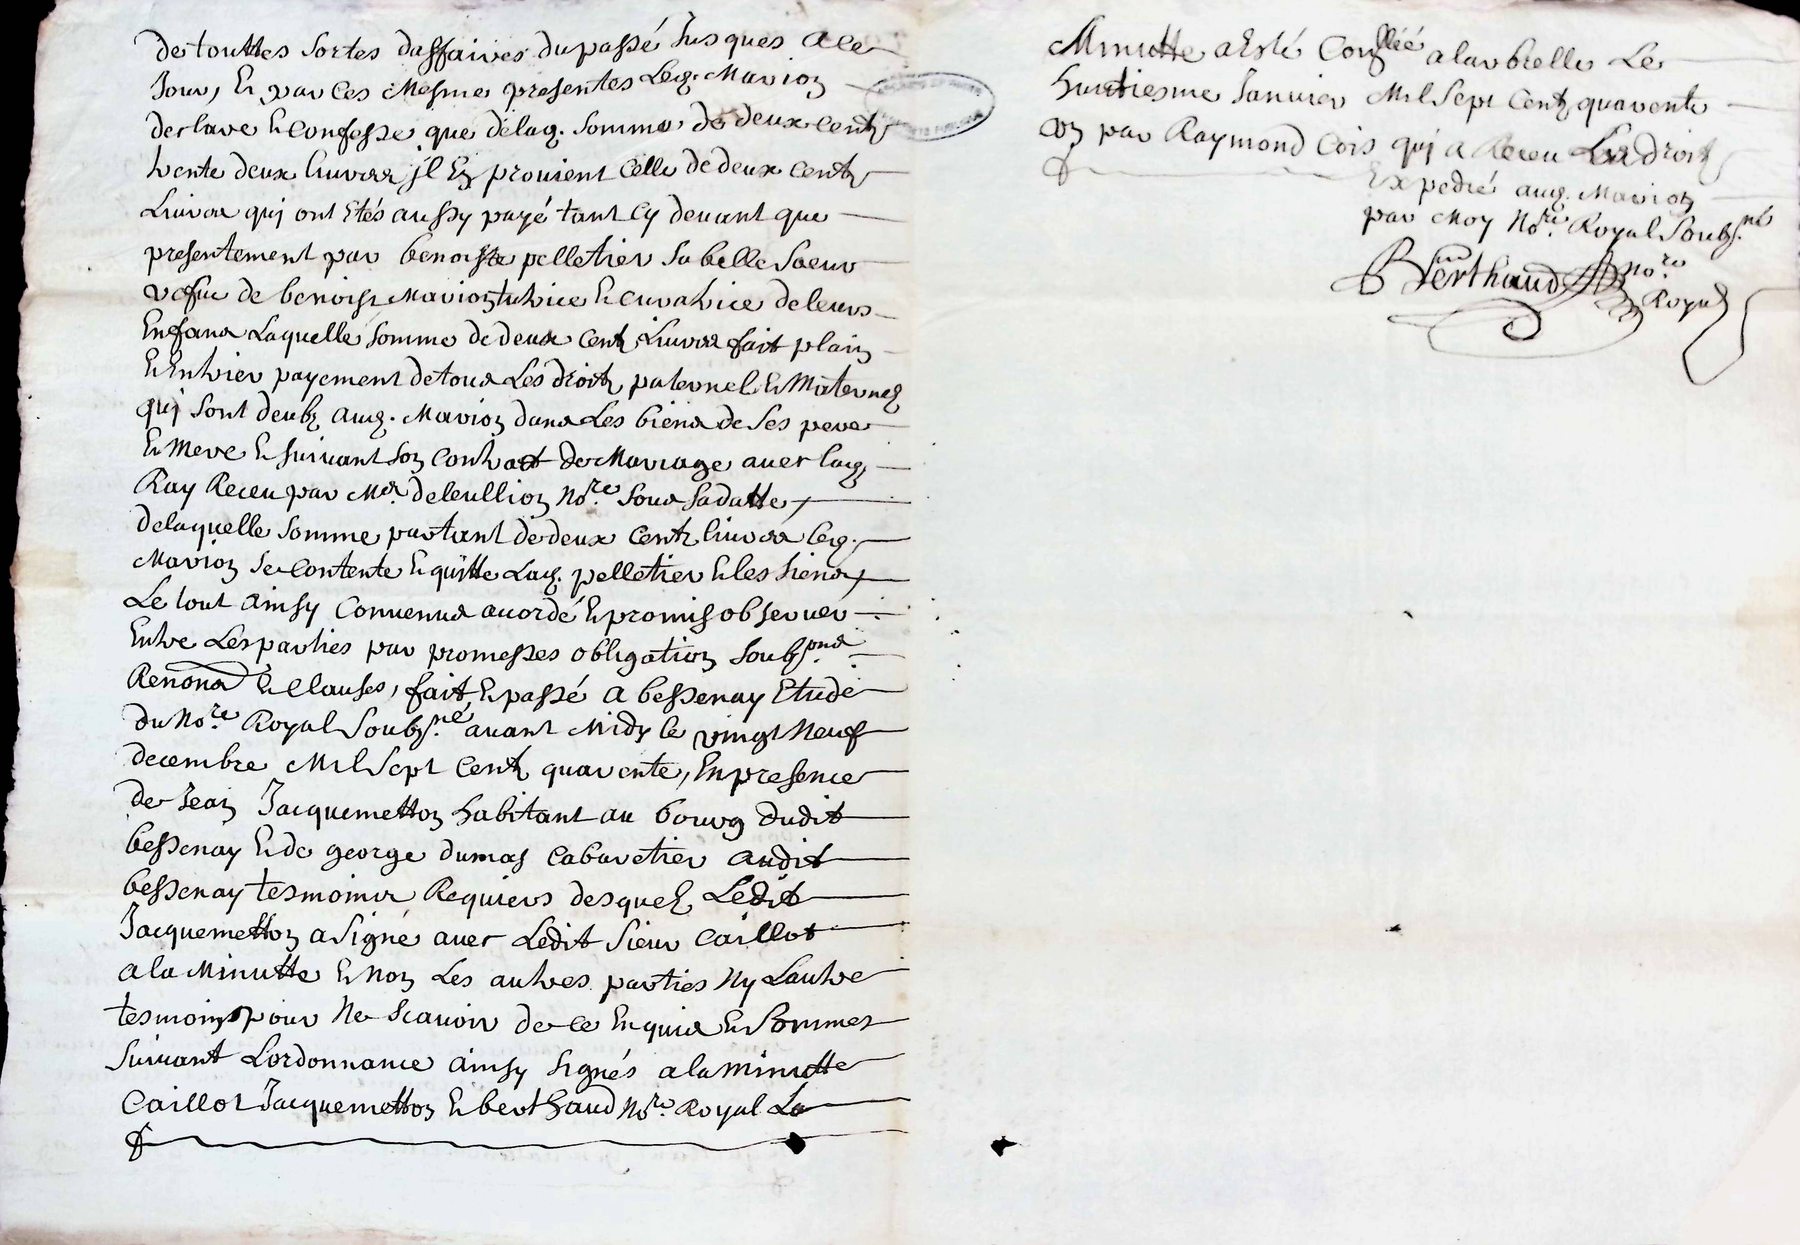 de touttes sortes daffaires du passé Jusques a ce
Jour, Et par ces Mesme presentes Led. Marion
declare Et confesse que delad. somme de deux cents
trente deux livres jl En provient celle de deux cents
Livres quj ont Etés aussy payé tant cy devant que
presentement par benoiste pelletier sa belle soeur
vefue de benoist Marion tutrice Et curatrice de leurs
Enfans Laquelle somme de deux cents Livres fait plain
Et Entier payement de tous Les droits paternel Et Maternel
quj sont deubs aud. Marion dans Les biens de ses pere
Et Mere Et suivant son contract de Mariage avec lad.
Ray Receu par Me. deleullion No.re sous sa datte
delaquelle somme partant de deux cents livres led.
Marion se contente Et quitte Lad. pelletier Et les siens
Le tout ainsy convenus acordé Et promis observer
Entre Les parties par promesses obligation soub.ons
Renons Et clauses, fait Et passé a bessenay Etude
du No.re Royal soubs.né avant Midy le vingt Neuf
decembre Mil Sept Cents quarente, En presence
de Jean Jacquemetton habitant au bourg dudit
bessenay Et de george dumas cabaretier audit
bessenay tesmoins Requiers desquels Ledit
Jacquemetton a signé avec Ledit sieur Caillot
a la Minutte Et Non Les autres parties Ny Lautre
tesmoins pour Ne scavoir de ce Enquis Et Sommes
suivant Lordonnance ainsy signés a la minutte
Caillot Jacquemetton Et berthaud No.re Royal La
Minutte a Esté Conllée a larbrelle Le
huictiesme Janvier Mil Sept Cents quarente
un par Raymond Cois quj a Receu Les droits
Expedié aud. Marion
par Moy No.re Royal Soubs.né
Berthaud No.re
Royal